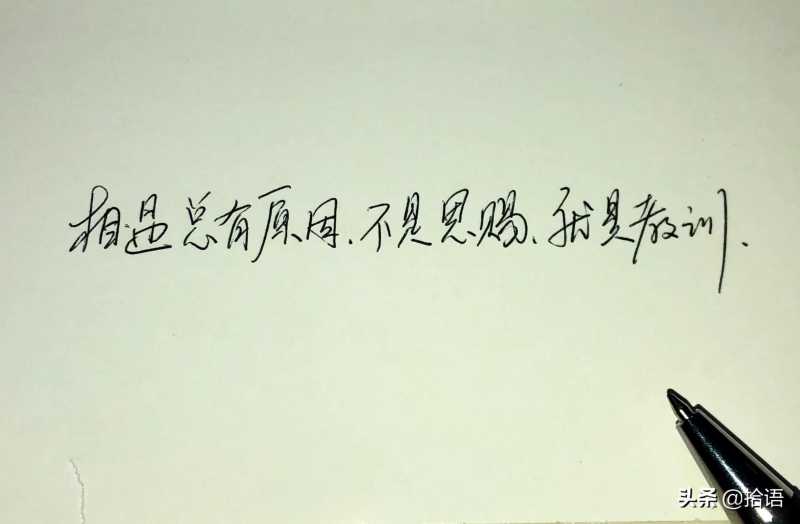 相遇总有原因、不是恩赐、就是教训.
头条 @拾语